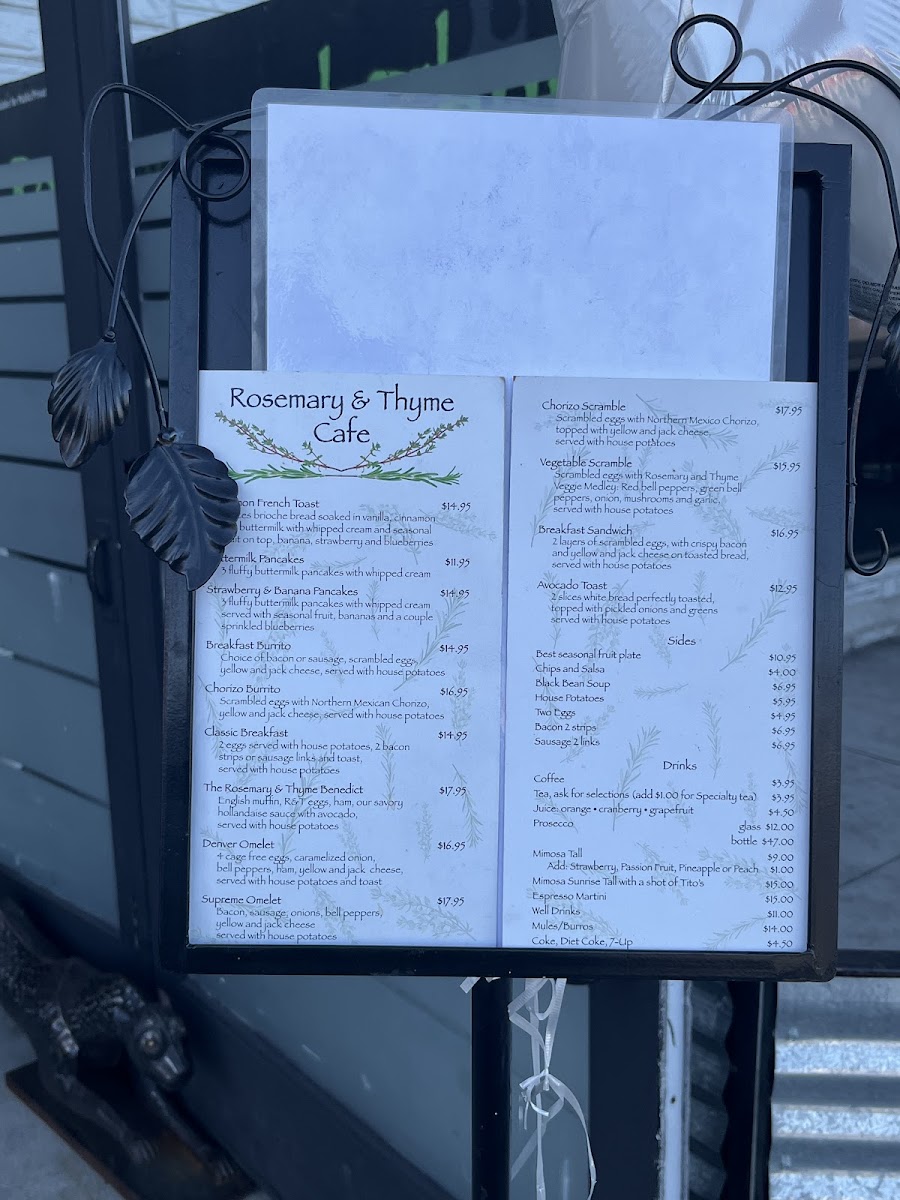 Rosemary & Thyme
Cafe
French Toast $14.95
brioche bread soaked in vanilla, cinnamon
buttermilk with whipped cream and seasonal
on top, banana, strawberry and blueberries
Pancakes $11.95
3 fluffy buttermilk pancakes with whipped cream
Strawberry & Banana Pancakes $14.95
3 fluffy buttermilk pancakes with whipped cream
served with seasonal fruit, bananas and a couple
sprinkled blueberries
Breakfast Burrito $14.95
Choice of bacon or sausage, scrambled eggs,
yellow and jack cheese, served with house potatoes
Chorizo Burrito $16.95
Scrambled eggs with Northern Mexican Chorizo,
yellow and jack cheese, served with house potatoes
Classic Breakfast $14.95
2 eggs served with house potatoes, 2 bacon
strips or sausage links and toast,
served with house potatoes
The Rosemary & Thyme Benedict $17.95
English muffin, R&T eggs, ham, our savory
hollandaise sauce with avocado,
served with house potatoes
Denver Omelet $16.95
4 cage free eggs, caramelized onion,
bell peppers, ham, yellow and jack cheese,
served with house potatoes and toast
Supreme Omelet $17.95
Bacon, sausage, onions, bell peppers,
yellow and jack cheese
served with house potatoes
Chorizo Scramble $17.95
Scrambled eggs with Northern Mexico Chorizo,
topped with yellow and jack cheese,
served with house potatoes
Vegetable Scramble $15.95
Scrambled eggs with Rosemary and Thyme
Veggie Medley: Red bell peppers, green bell
peppers, onion, mushrooms and garlic,
served with house potatoes
Breakfast Sandwich $16.95
2 layers of scrambled eggs, with crispy bacon
and yellow and jack cheese on toasted bread,
served with house potatoes
Avocado Toast $12.95
2 slices white bread perfectly toasted,
topped with pickled onions and greens
served with house potatoes
Sides
Best seasonal fruit plate $10.95
Chips and Salsa $4.00
Black Bean Soup $6.95
House Potatoes $5.95
Two Eggs $4.95
Bacon 2 strips $6.95
Sausage 2 links $6.95
Drinks
Coffee $3.95
Tea, ask for selections (add $1.00 for Specialty tea) $3.95
Juice: orange • cranberry • grapefruit $4.50
Prosecco glass $12.00
bottle $47.00
Mimosa Tall $9.00
Add: Strawberry, Passion Fruit, Pineapple or Peach $1.00
Mimosa Sunrise Tall with a shot of Tito's $15.00
Espresso Martini $15.00
Well Drinks $11.00
Mules/Burros $14.00
Coke, Diet Coke, 7-Up $4.50